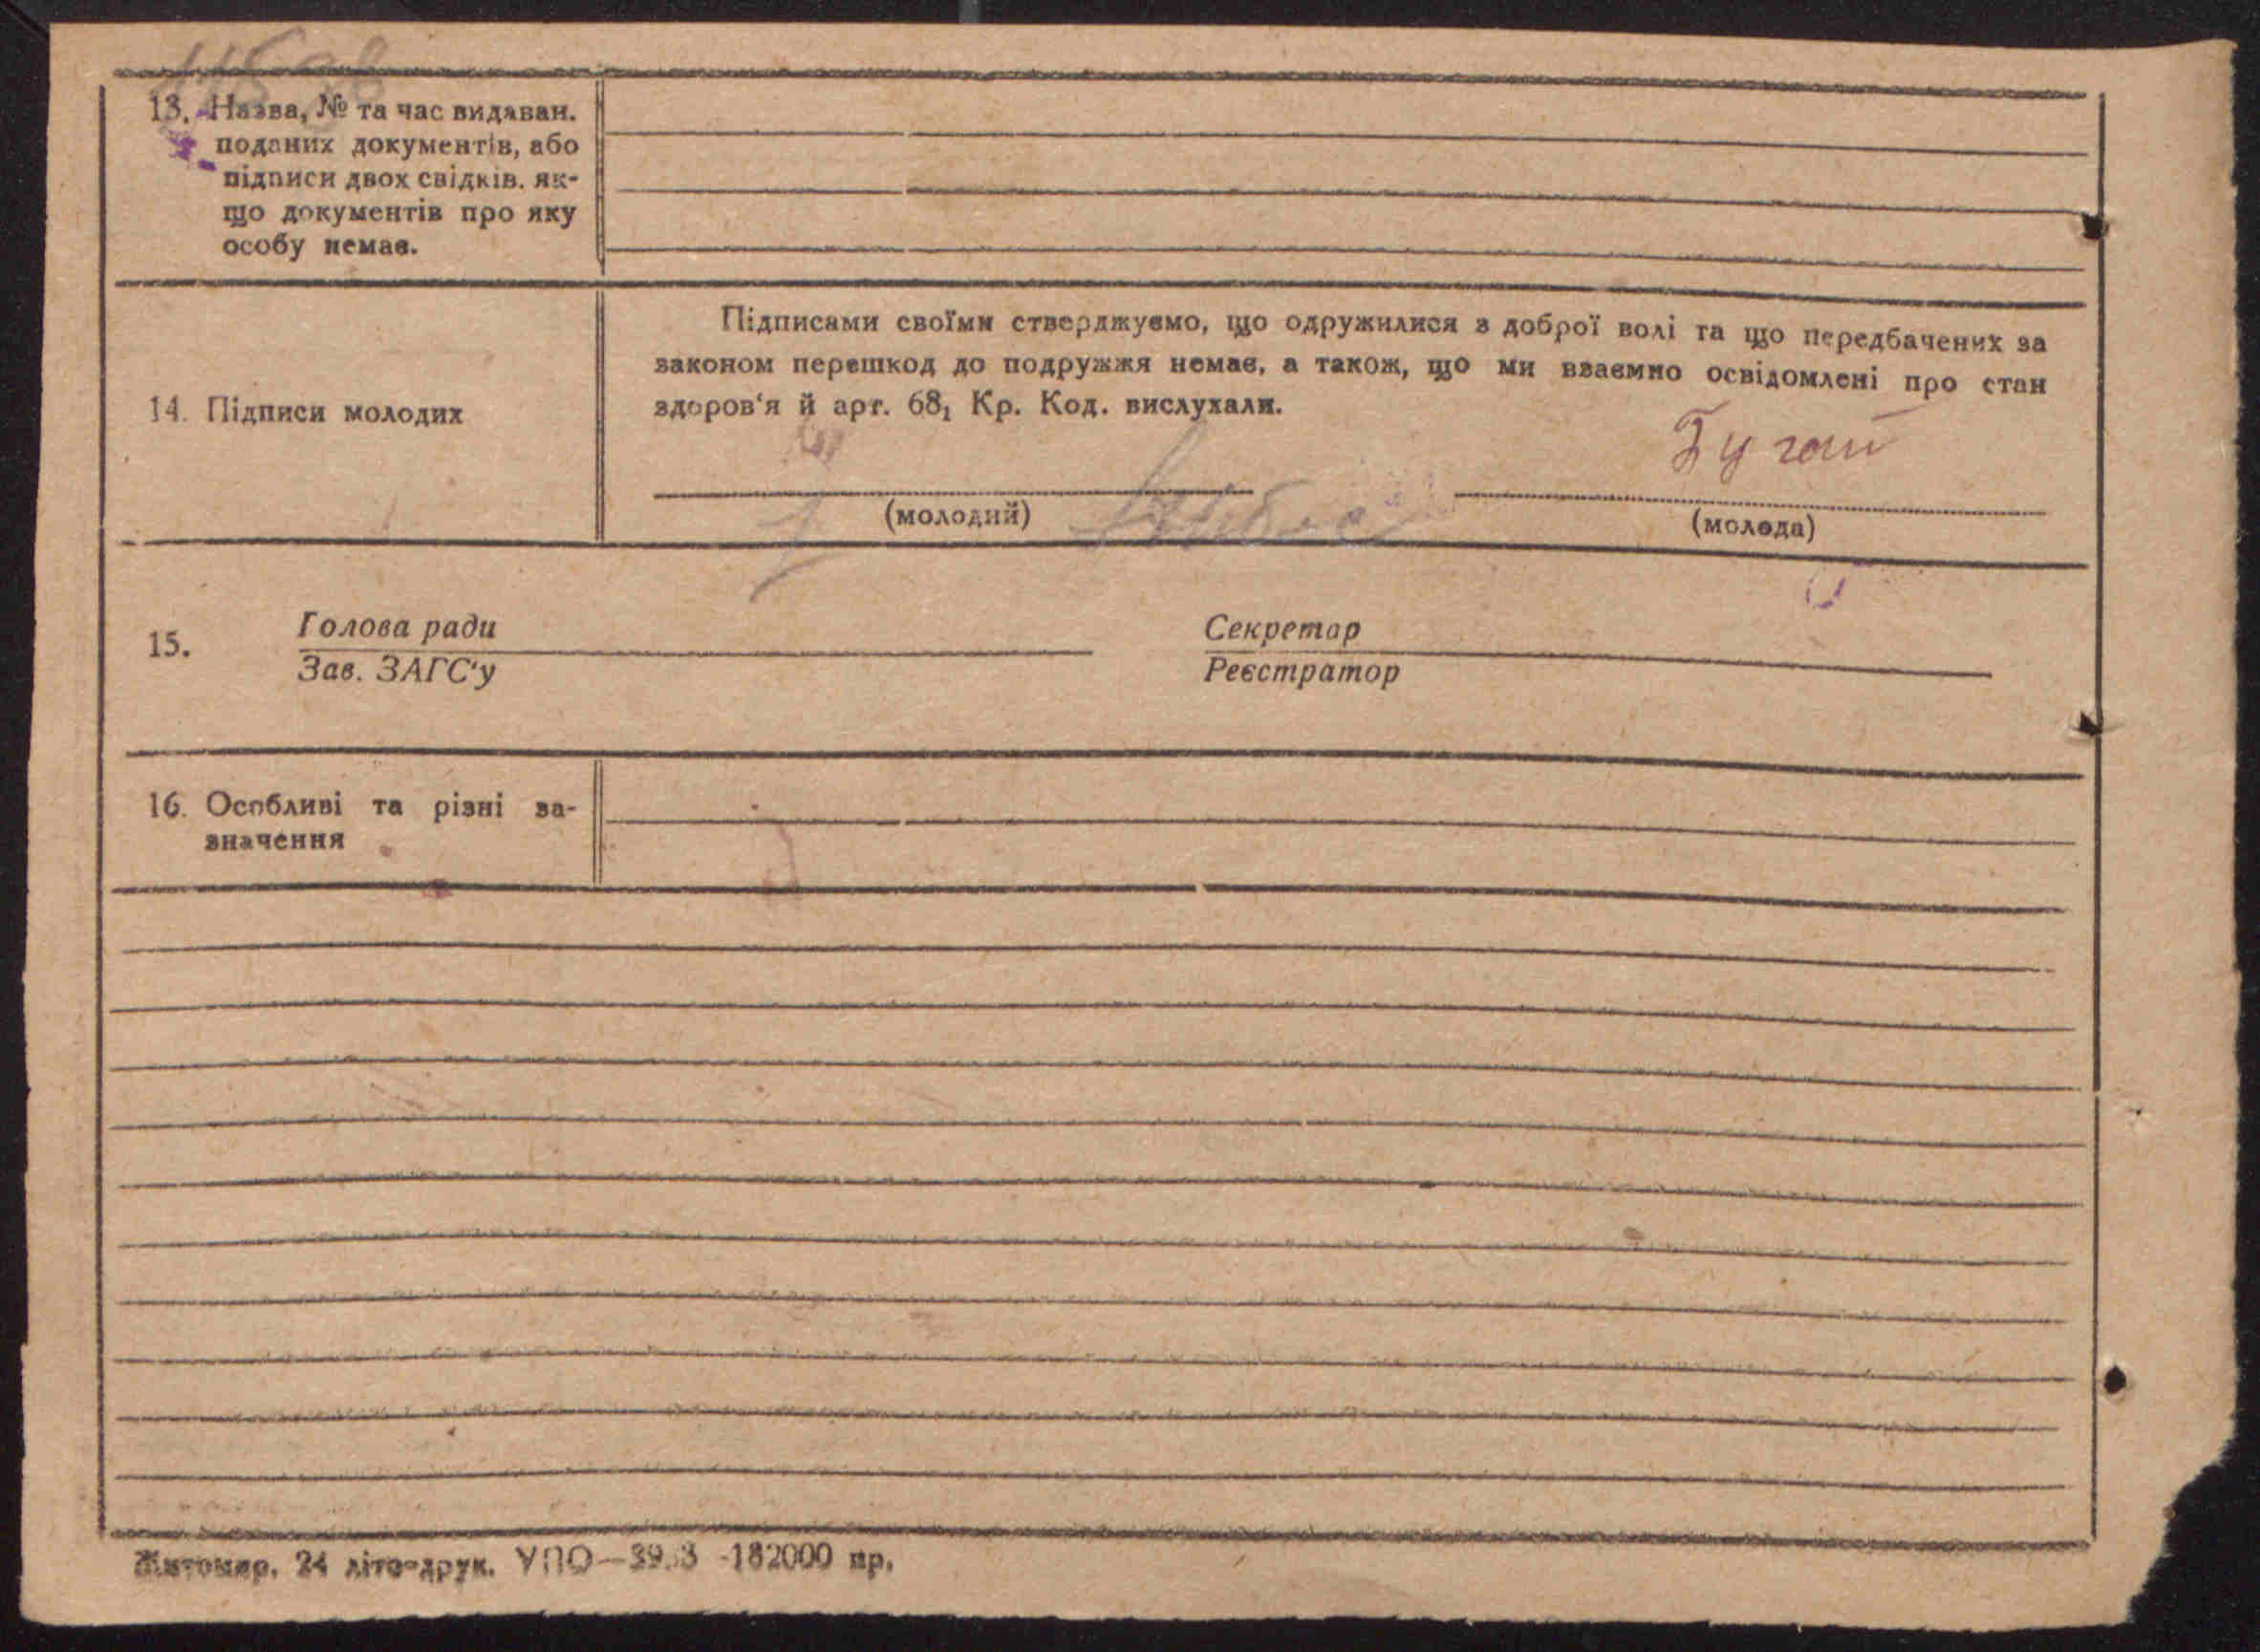 13. Назва, № та час видаван.
поданих документів, або
підписи двох свідків. як-
що документів про яку
особу немає.
Підписами своїми стверджуємо, що одружилися з доброї волі та що передбачених за
законом перешкод до подружжя немає, а також, що ми взаємно освідомлені про стан
здоров‘я й арт. 68₁ Кр. Код. вислухали.
14. Підписи молодих
Бугай
(молодий) (молода)
15. Голова ради Секретар
Зав. ЗАГС‘у Реєстратор
16. Особливі та різні за-
значення
Житомир. 24 літо-друк. УПО— -182000 пр.